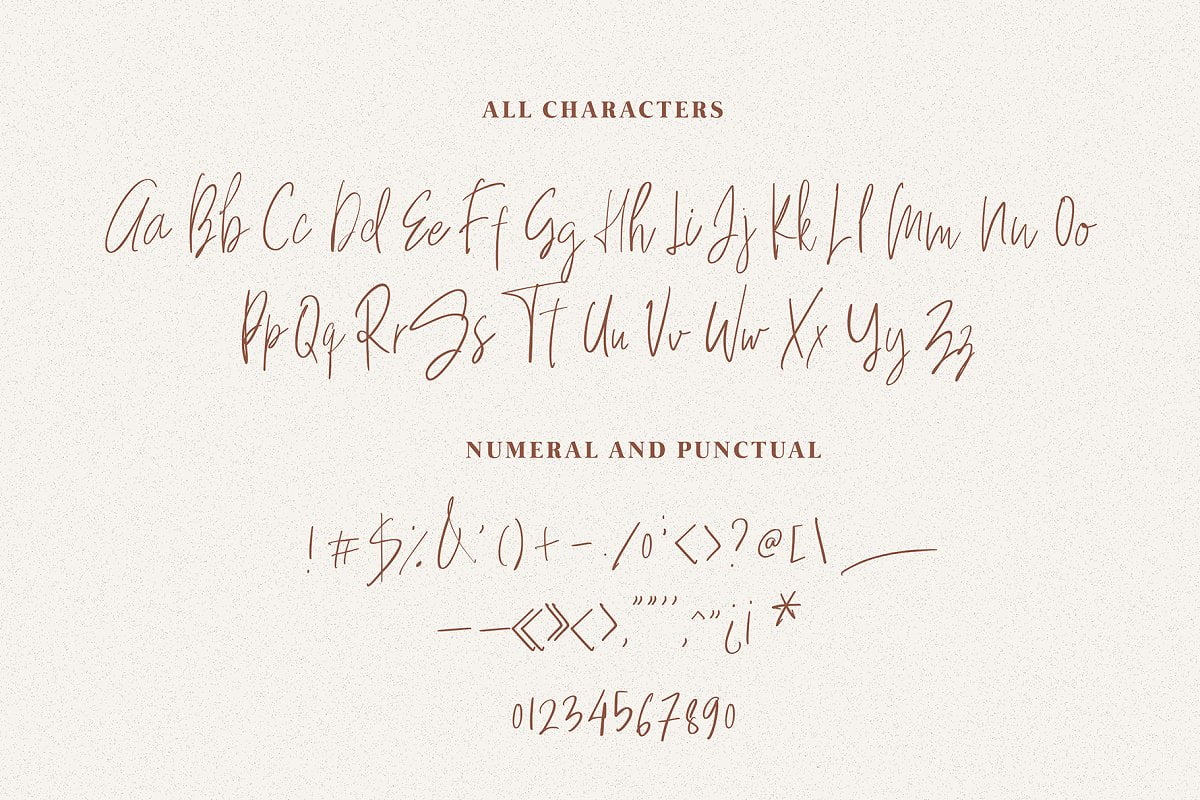 ALL CHARACTERS
Aa Bb Cc Dd Ee Ff Gg Hh Ii Jj Kk Ll Mm Nn Oo
Pp Qq Rr Ss Tt Uu Vv Ww Xx Yy Zz
NUMERAL AND PUNCTUAL
! # $ % & ' ( ) + - . / 0 ; < > ? @ [ \ _
— — « » ‹ › , " " ' ' , ^ " ¿ ¡ *
01234567890